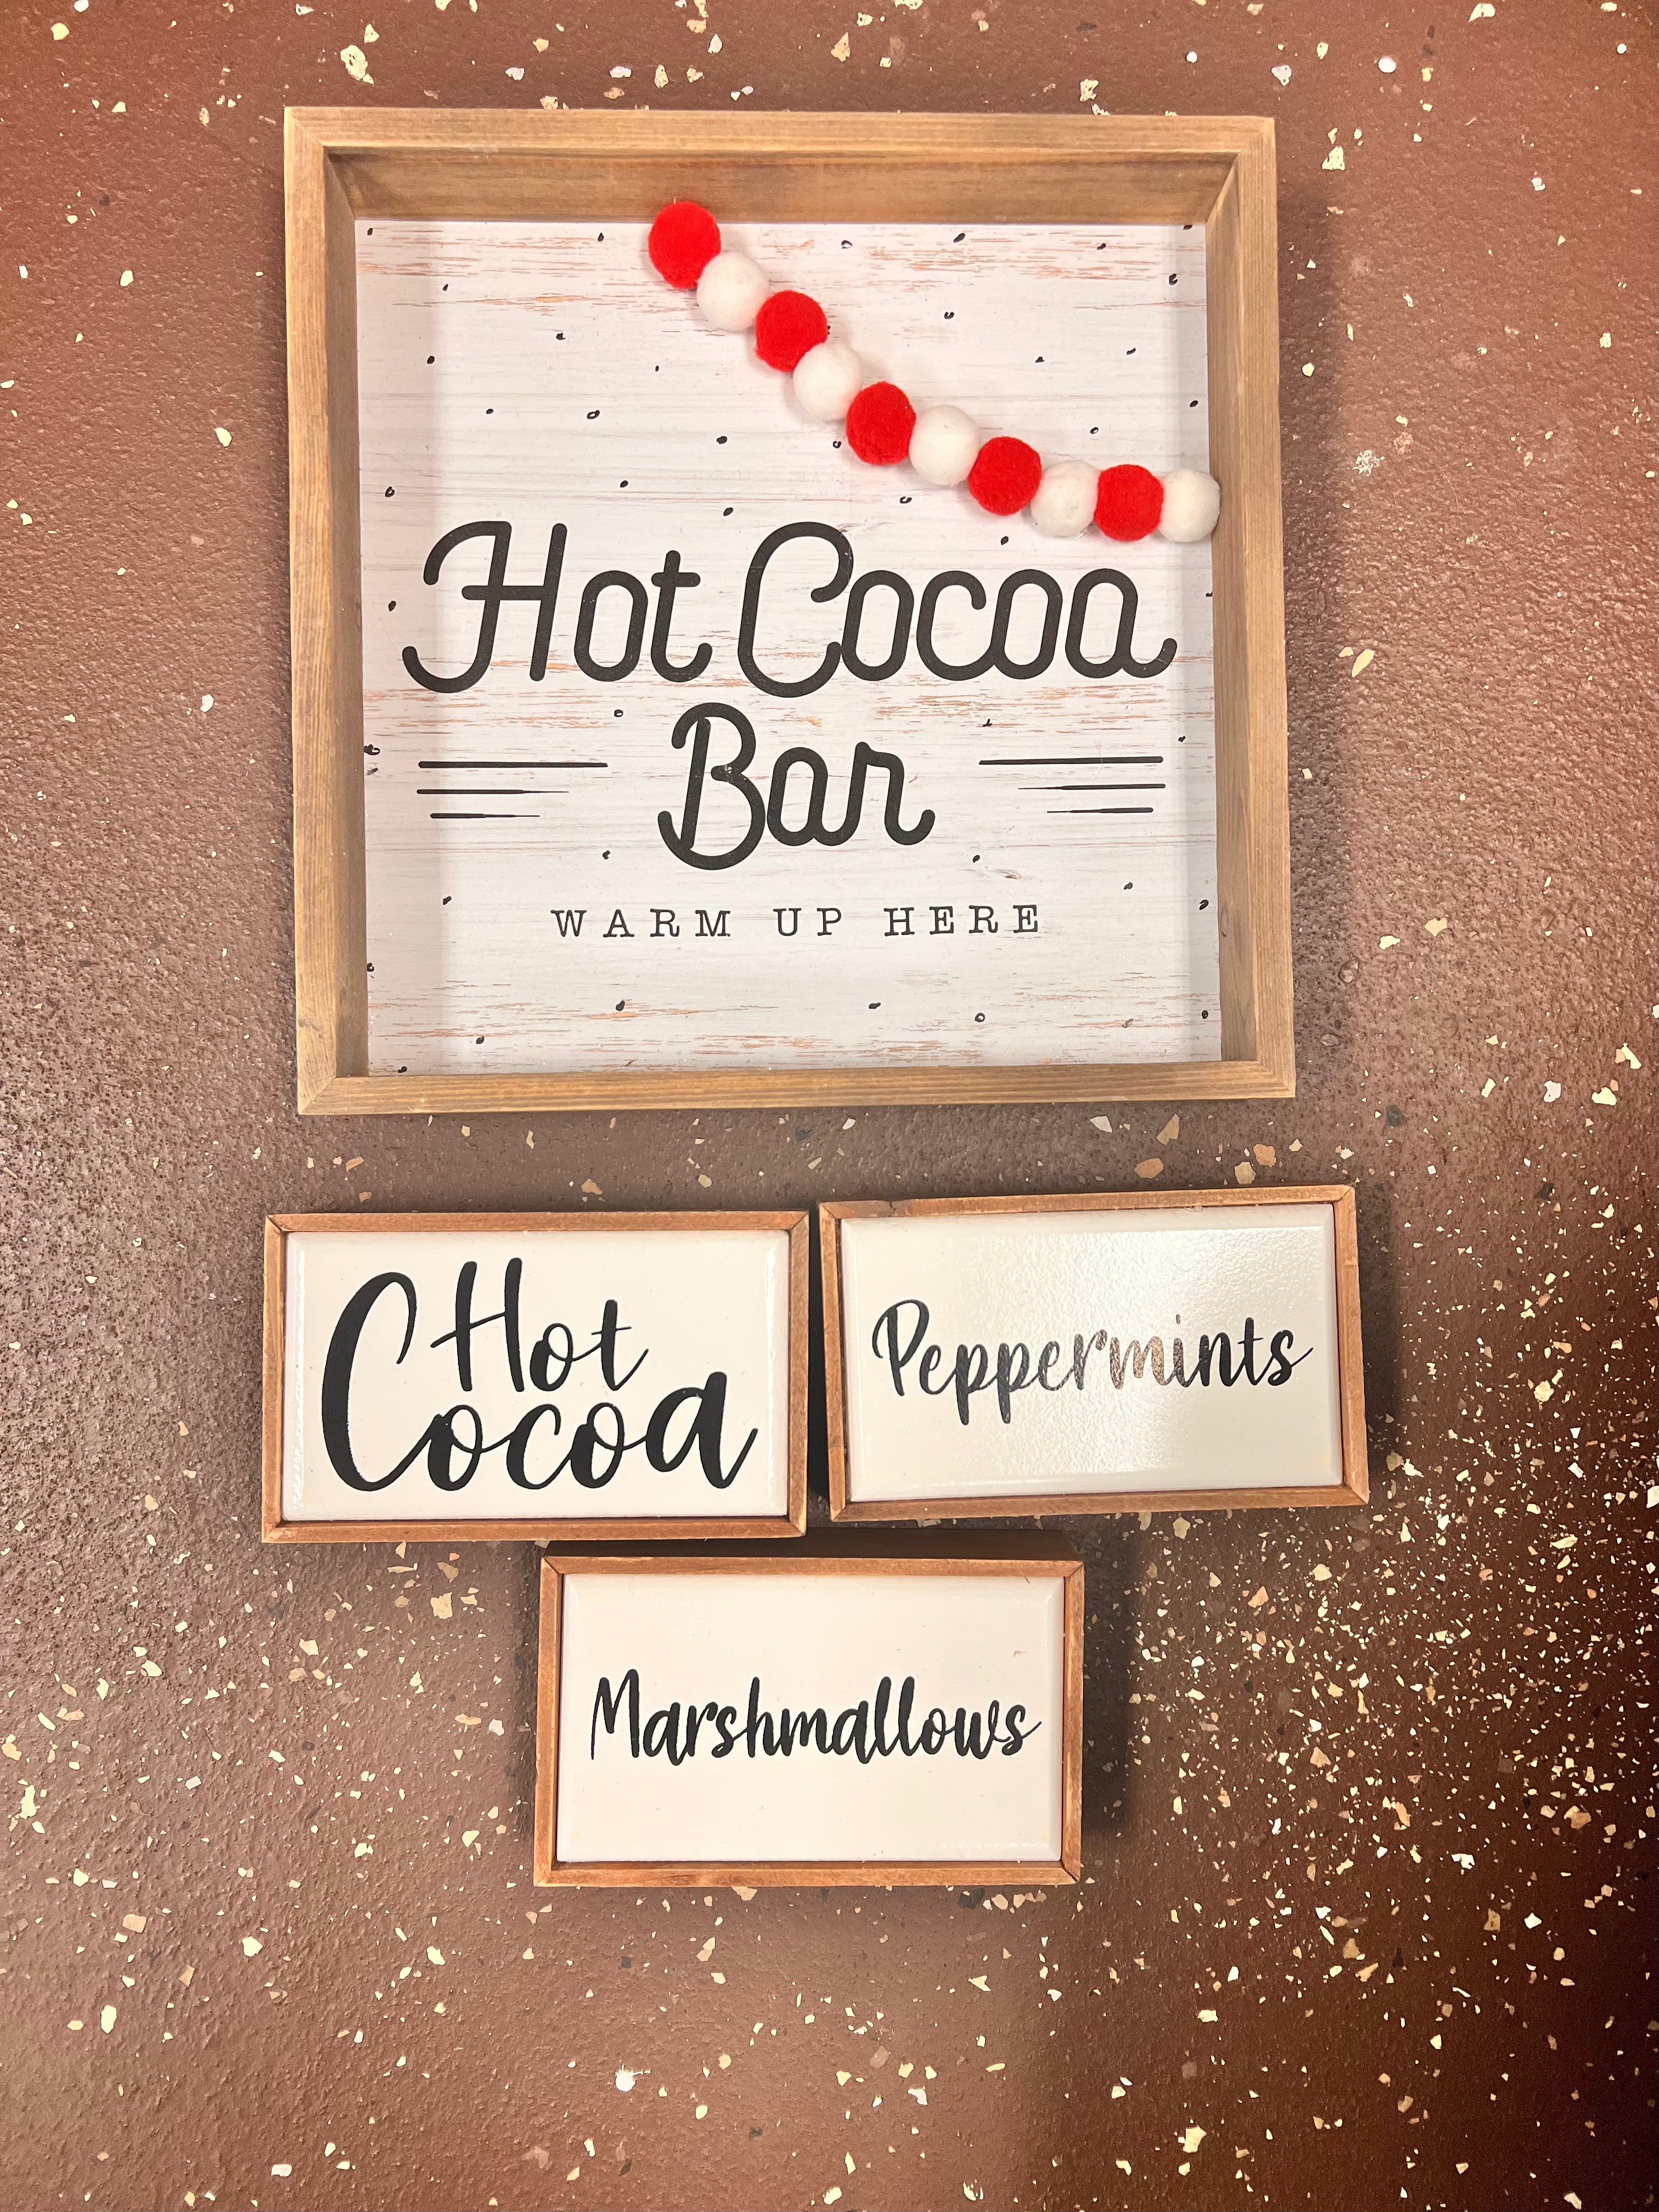 Hot Cocoa
Bar
WARM UP HERE
Hot
Cocoa
Peppermints
Marshmallows